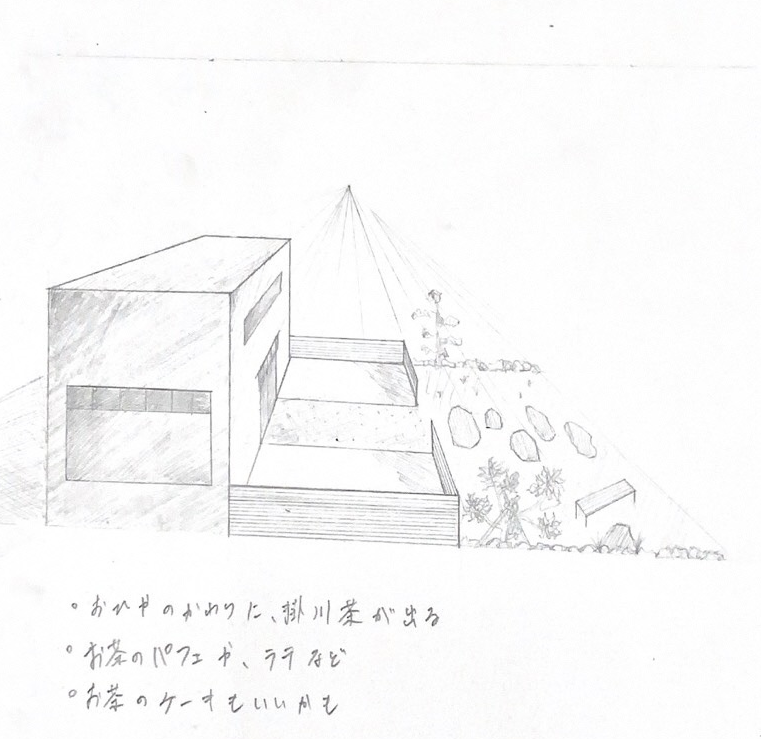 ・おひやのかわりに、掛川茶が出る
・お茶のパフェや、ラテなど
・お茶のケーキもいいかも